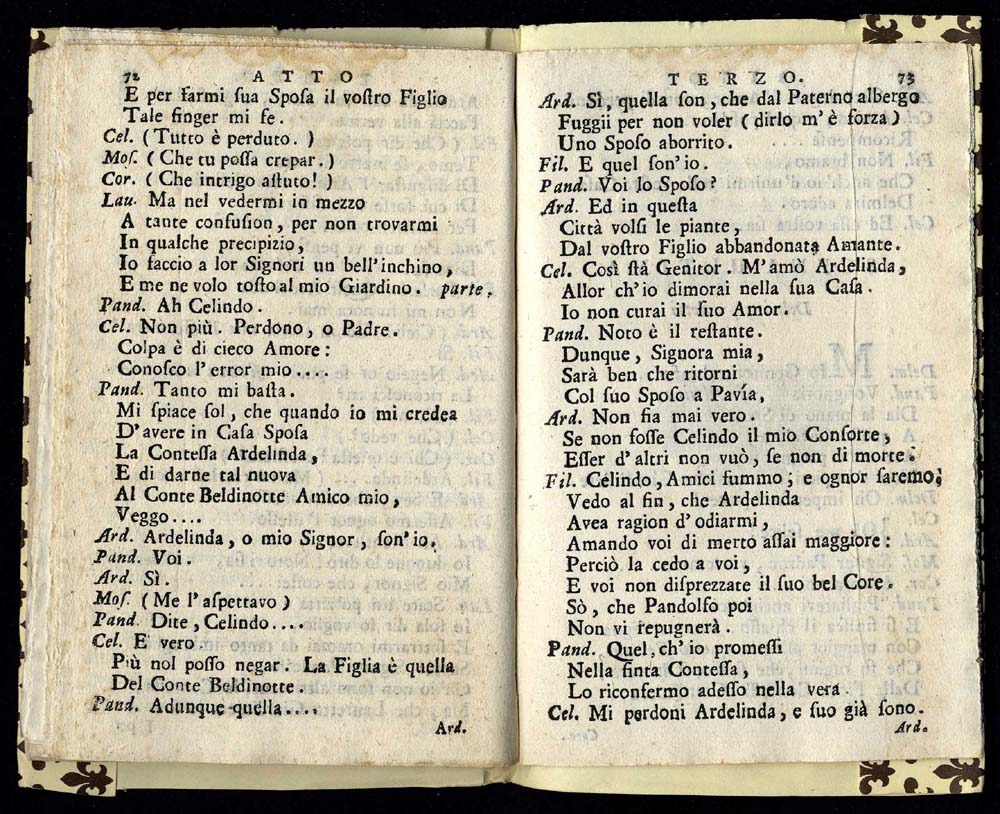 72 ATTO
E per farmi ſua Spoſa il voſtro Figlio
Tale finger mi fe.
Cel. (Tutto è perduto.)
Moſ. (Che tu poſſa crepar.)
Cor. (Che intrigo aſtuto!)
Lau. Ma nel vedermi in mezzo
A tante confuſion, per non trovarmi
In qualche precipizio,
Io faccio a lor Signori un bell'inchino,
E me ne volo toſto al mio Giardino. parte.
Pand. Ah Celindo.
Cel. Non più. Perdono, o Padre.
Colpa è di cieco Amore:
Conoſco l'error mio....
Pand. Tanto mi baſta.
Mi ſpiace ſol, che quando io mi credea
D'avere in Caſa Spoſa
La Conteſſa Ardelinda,
E di darne tal nuova
Al Conte Beldinotte Amico mio,
Veggo....
Ard. Ardelinda, o mio Signor, ſon'io.
Pand. Voi.
Ard. Sì.
Moſ. (Me l'aſpettavo)
Pand. Dite, Celindo....
Cel. E vero.
Più nol poſſo negar. La Figlia è quella
Del Conte Beldinotte.
Pand. Adunque quella....
Ard.
TERZO. 73
Ard. Sì, quella ſon, che dal Paterno albergo
Fuggii per non voler (dirlo m'è forza)
Uno Spoſo aborrito.
Fil. E quel ſon'io.
Pand. Voi lo Spoſo?
Ard. Ed in queſta
Città volſi le piante,
Dal voſtro Figlio abbandonata Amante.
Cel. Così ſtà Genitor. M'amò Ardelinda,
Allor ch'io dimorai nella ſua Caſa.
Io non curai il ſuo Amor.
Pand. Noto è il reſtante.
Dunque, Signora mia,
Sarà ben che ritorni
Col ſuo Spoſo a Pavía,
Ard. Non fia mai vero.
Se non foſſe Celindo il mio Conſorte,
Eſſer d'altri non vuò, ſe non di morte.
Fil. Celindo, Amici fummo; e ognor ſaremo;
Vedo al fin, che Ardelinda
Avea ragion d'odiarmi,
Amando voi di merto aſſai maggiore:
Perciò la cedo a voi,
E voi non diſprezzate il ſuo bel Core.
Sò, che Pandolfo poi
Non vi repugnerà.
Pand. Quel, ch'io promeſſi
Nella finta Conteſſa,
Lo riconfermo adeſſo nella vera.
Cel. Mi perdoni Ardelinda, e ſuo già ſono.
Ard.